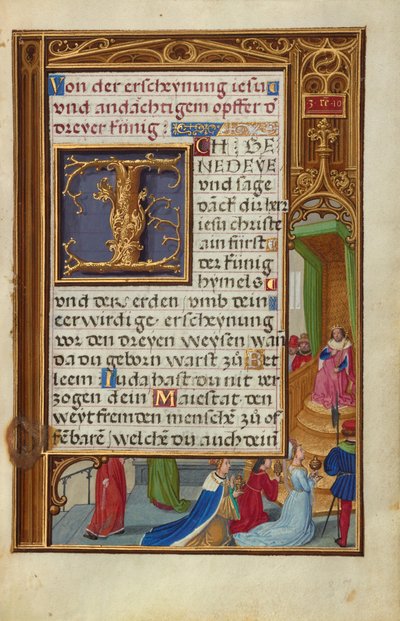 Von der erscheynung iesu
vnd andächtigem opffer d
dreyer künig:
3·re·10
ICH BE
NEDEYE
vnd sage
danck dir herr
iesu christe
ain fürst
der künig
hymels
vnd der erden vmb dein
eerwirdige erscheynung
vor den dreyen weysen wan
da du geborn warst zů Bet
leem Iuda hast du nit ver
zogen dein Maiestat den
weytfremden menschē zů of
fēbarē welche du auch dein